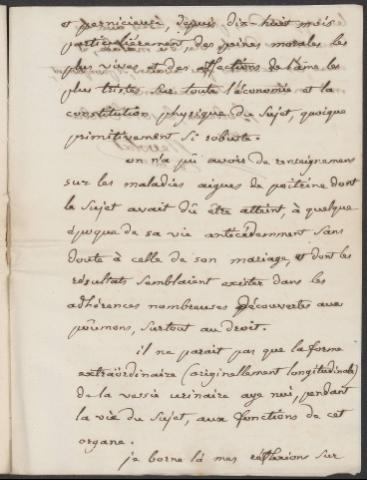 et pernicieux, depuis dix-huit mois
particulièrement des peines morales les
plus vives et des affections de l'âme les
plus tristes sur toute l'économie et la
constitution physique du sujet, quoique
primitivement si robuste.
on n'a pû avoir de renseignemens
sur les maladies aigues de poitrine dont
le sujet avait dû être atteint, à quelque
époque de sa vie antécédemment sans
doute à celle de son mariage, et dont les
résultats semblaient exister dans les
adhérences nombreuses découvertes aux
poumons, surtout au droit.
il ne parait pas que la forme
extraördinaire (originellement longitudinale)
de la vessie urinaire aye nui, pendant
la vie du sujet, aux fonctions de cet
organe.
je borne là mes réflexions sur